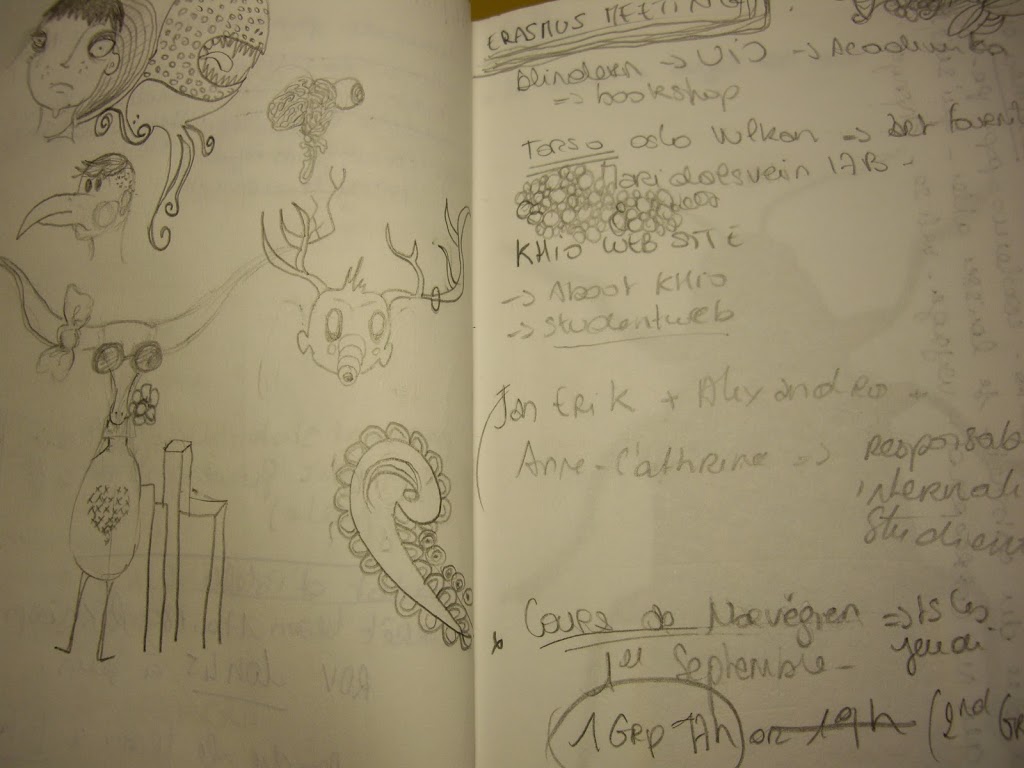 ERASMUS MEETING
blindern → UiO → Academika
⇒ bookshop
Torso oslo
Maridalsvein 17B -
KHIO WEB SITE
→ About KHIO
→ Studentweb
Jan Erik + Alexandro +
Anne-Cathrine →
responsab
internati
Studien
Cours de Norvégien ⇒ 15
jeudi
1er Septembre -
1 Grp 17h or 19h (2nd Gr
RDV